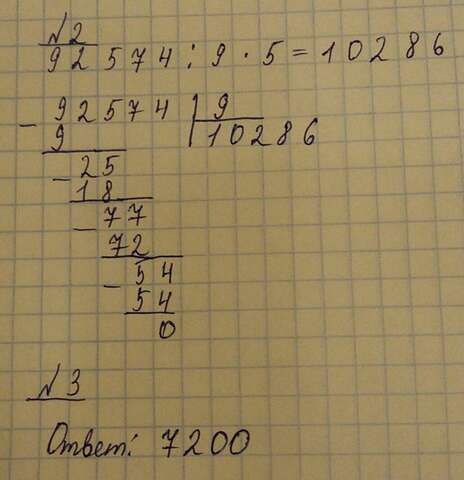 №2
92574 : 9 · 5 = 10286
- 92574 | 9
9 10286
- 25
18
- 77
72
- 54
54
0
№3
Ответ: 7200